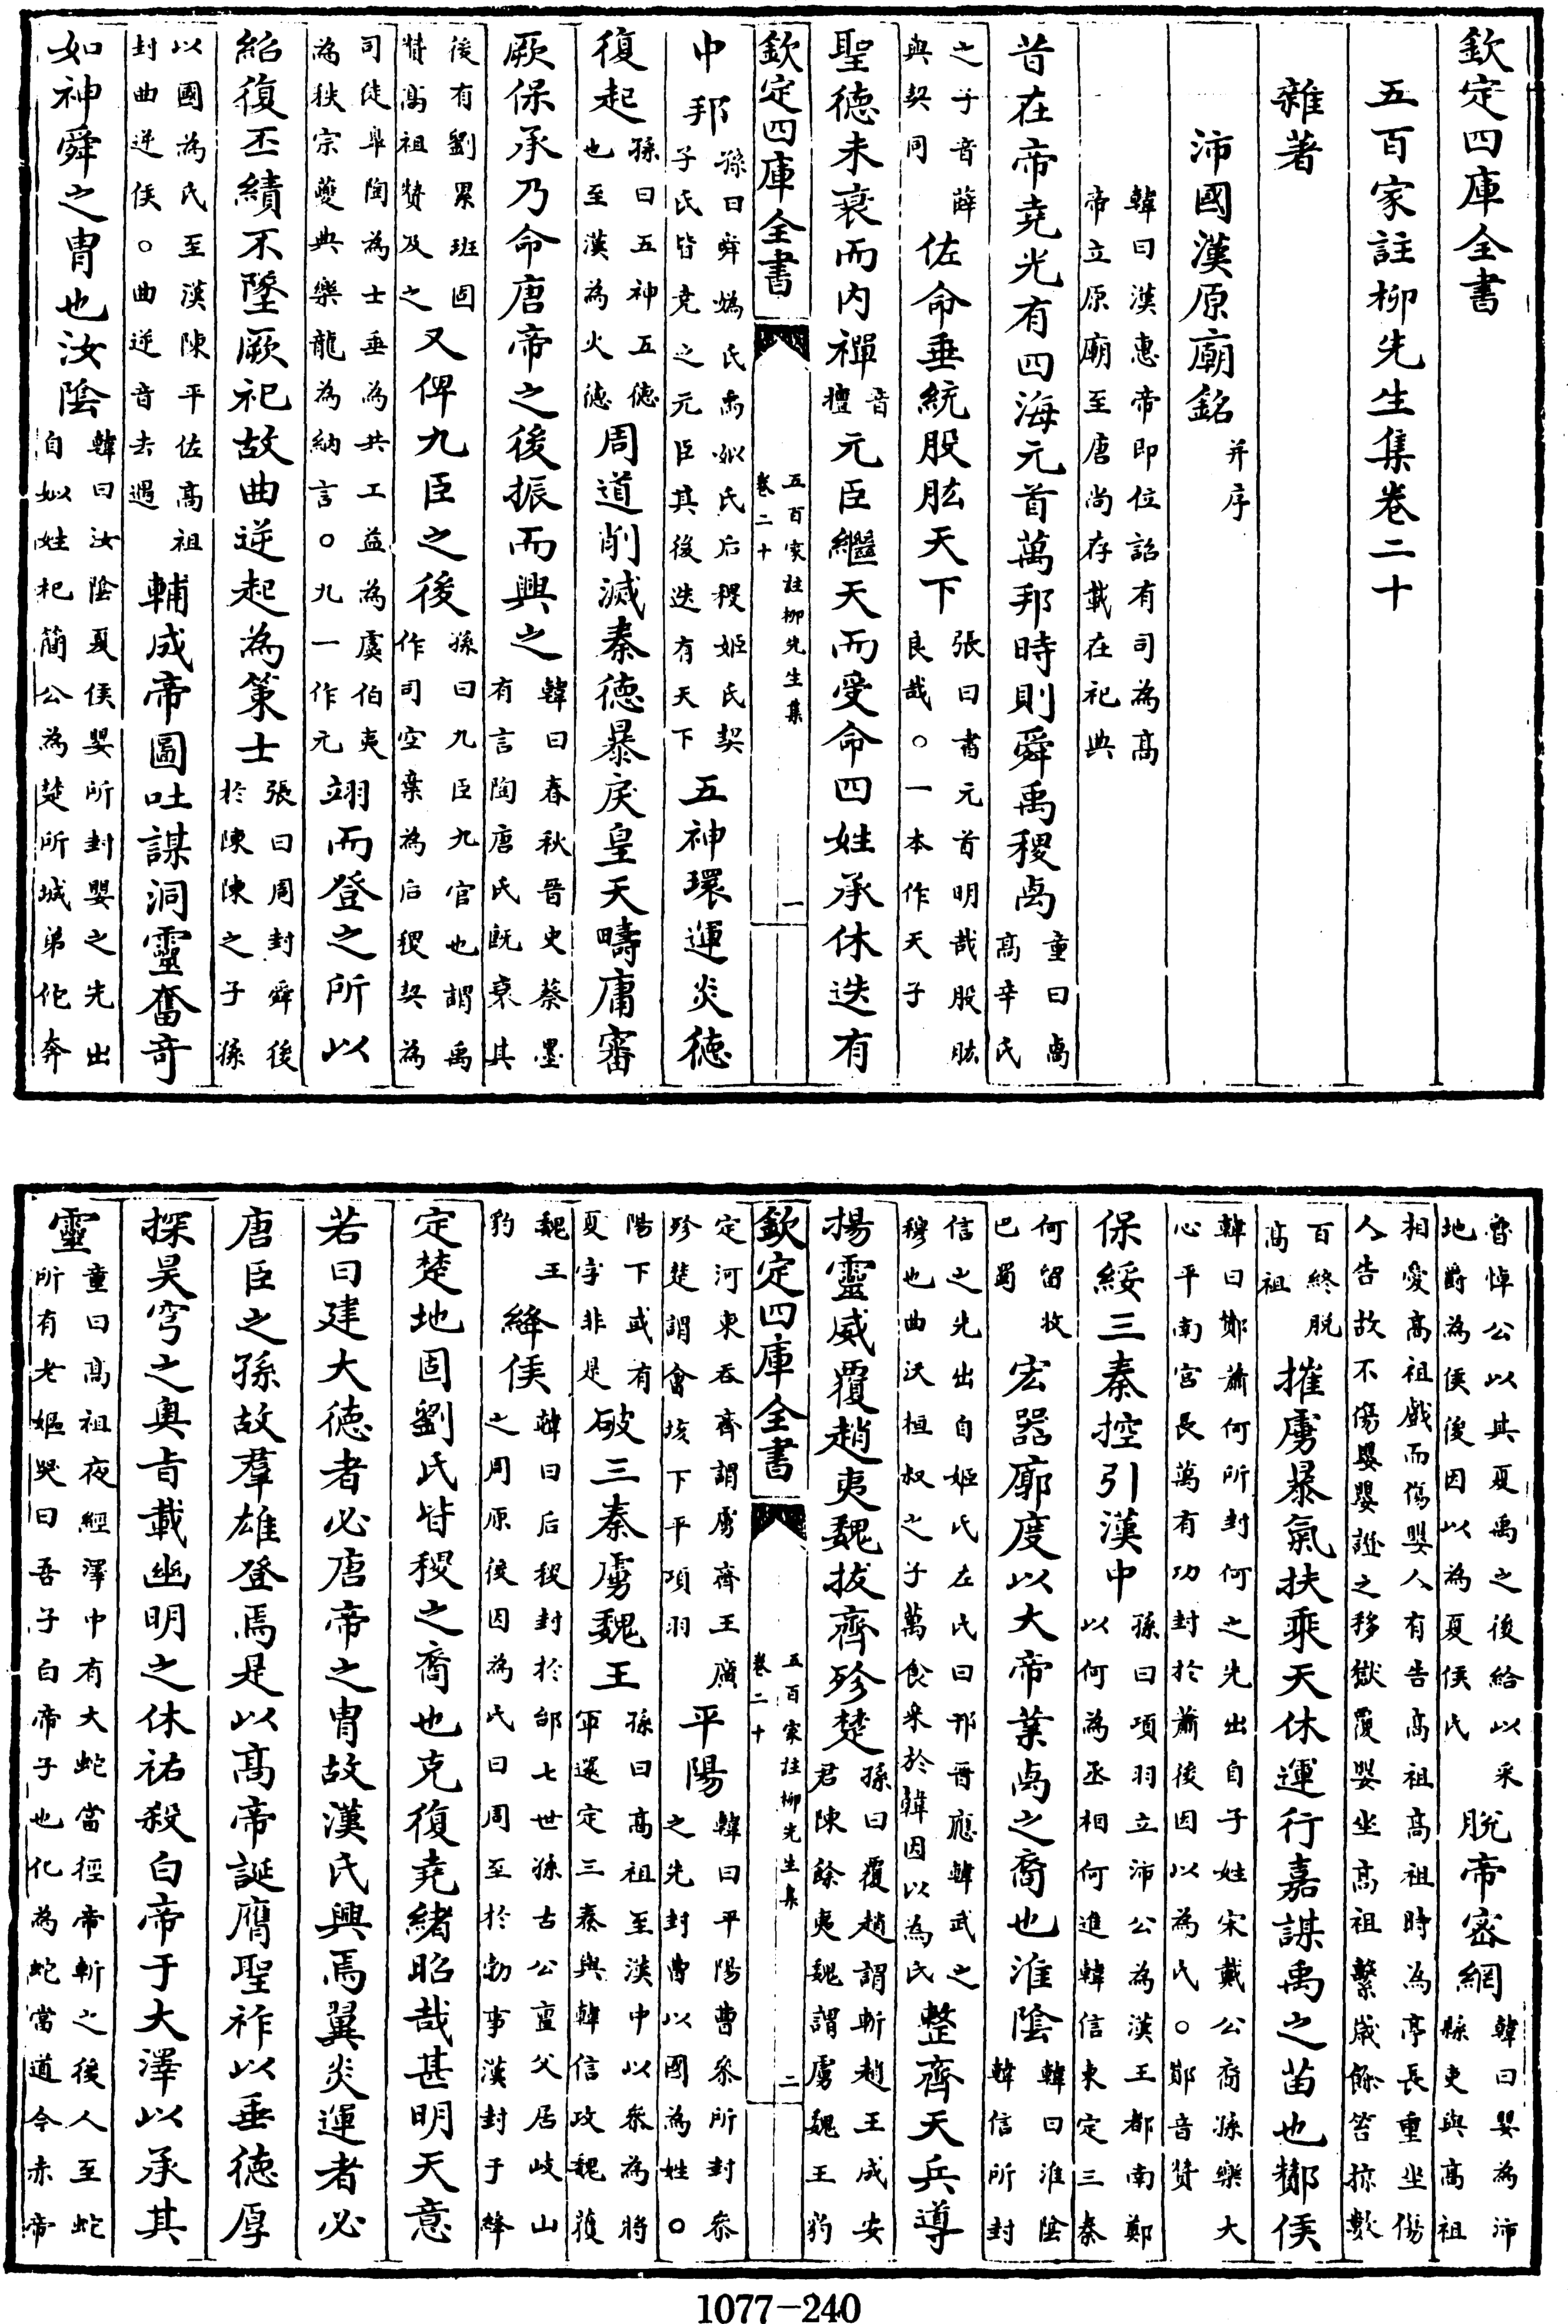 欽定四庫全書
五百家註柳先生集卷二十
雜著
沛國漢原廟銘并序
韓曰漢惠帝即位詔有司為高帝立原廟至唐尚存載在祀典
昔在帝堯光有四海元首萬邦時則舜禹稷卨童曰卨高辛氏
之子音薛與契同佐命垂統股肱天下張曰書元首明哉股肱良哉○一本作天子
聖德未衰而内禪音擅元臣繼天而受命四姓承休迭有
欽定四庫全書 五百家註柳先生集 卷二十 一
中邦孫曰舜嬀氏禹姒氏后稷姬氏契子氏皆堯之元臣其後迭有天下五神環運炎德
復起孫曰五神五德也至漢為火德周道削滅秦德暴戾皇天疇庸審
厥保承乃命唐帝之後振而興之韓曰春秋晉史蔡墨有言陶唐氏既衰其
後有劉累班固贊高祖贊及之又俾九臣之後孫曰九臣九官也謂禹作司空棄為后稷契為
司徒臯陶為士垂為共工益為虞伯夷為秩宗夔典樂龍為納言○九一作元翊而登之所以
紹復丕績不墜厥祀故曲逆起為策士張曰周封舜後於陳陳之子孫
以國為氏至漢陳平佐高祖封曲逆侯○曲逆音去遇輔成帝圖吐謀洞靈奮奇
如神舜之胄也汝陰韓曰汝陰夏侯嬰所封嬰之先出自姒姓杞簡公為楚所城弟佗奔
魯悼公以其夏禹之後給以采地爵為侯後因以為夏侯氏脫帝密網韓曰嬰為沛縣吏與高祖
相愛高祖戲而傷嬰人有告高祖高祖時為亭長重坐傷人告故不傷嬰嬰證之移獄覆嬰坐高祖繫歲餘笞掠數
百終脫高祖摧虜暴氣扶乘天休運行嘉謀禹之苗也酇侯
韓曰酇蕭何所封何之先出自子姓宋戴公裔孫樂大心平南宫長萬有功封於蕭後因以為氏○酇音贊
保綏三秦控引漢中孫曰項羽立沛公為漢王都南鄭以何為丞相何進韓信東定三秦
何留收巴蜀宏器廓度以大帝業卨之裔也淮陰韓曰淮陰韓信所封
信之先出自姬氏左氏曰邢晉應韓武之穆也曲沃桓叔之子萬食采於韓因以為氏整齊天兵導
揚靈威覆趙夷魏拔齊殄楚孫曰覆趙謂斬趙王成安君陳餘夷魏謂虜魏王豹
欽定四庫全書 五百家註柳先生集 卷二十 二
定河東吞齊謂虜齊王廣殄楚謂會垓下平項羽平陽韓曰平陽曹參所封參之先封曹以國為姓○
陽下或有夏字非是破三秦虜魏王孫曰高祖至漢中以參為將軍還定三秦與韓信攻魏獲
魏王豹絳侯韓曰后稷封於邰七世孫古公亶父居岐山之周原後因為氏曰周至於勃事漢封于絳
定楚地固劉氏皆稷之裔也克復堯緒昭哉甚明天意
若曰建大德者必唐帝之胄故漢氏興焉翼炎運者必
唐臣之孫故羣雄登焉是以高帝誕膺聖祚以垂德厚
探昊穹之奥㫖載幽明之休祐殺白帝于大澤以承其
靈童曰高祖夜經澤中有大蛇當徑帝斬之後人至蛇所有老嫗哭曰吾子白帝子也化為蛇當道今赤帝
1077-240